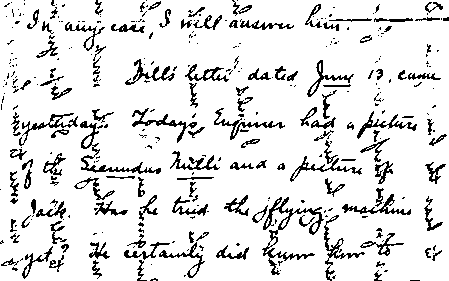 In any case, I will answer him.
Bill's letter dated June 13, came
yesterday. Today's Enquirer had a picture
of the and a picture of
Jack. Has he tried the flying machine
yet? He certainly did him to